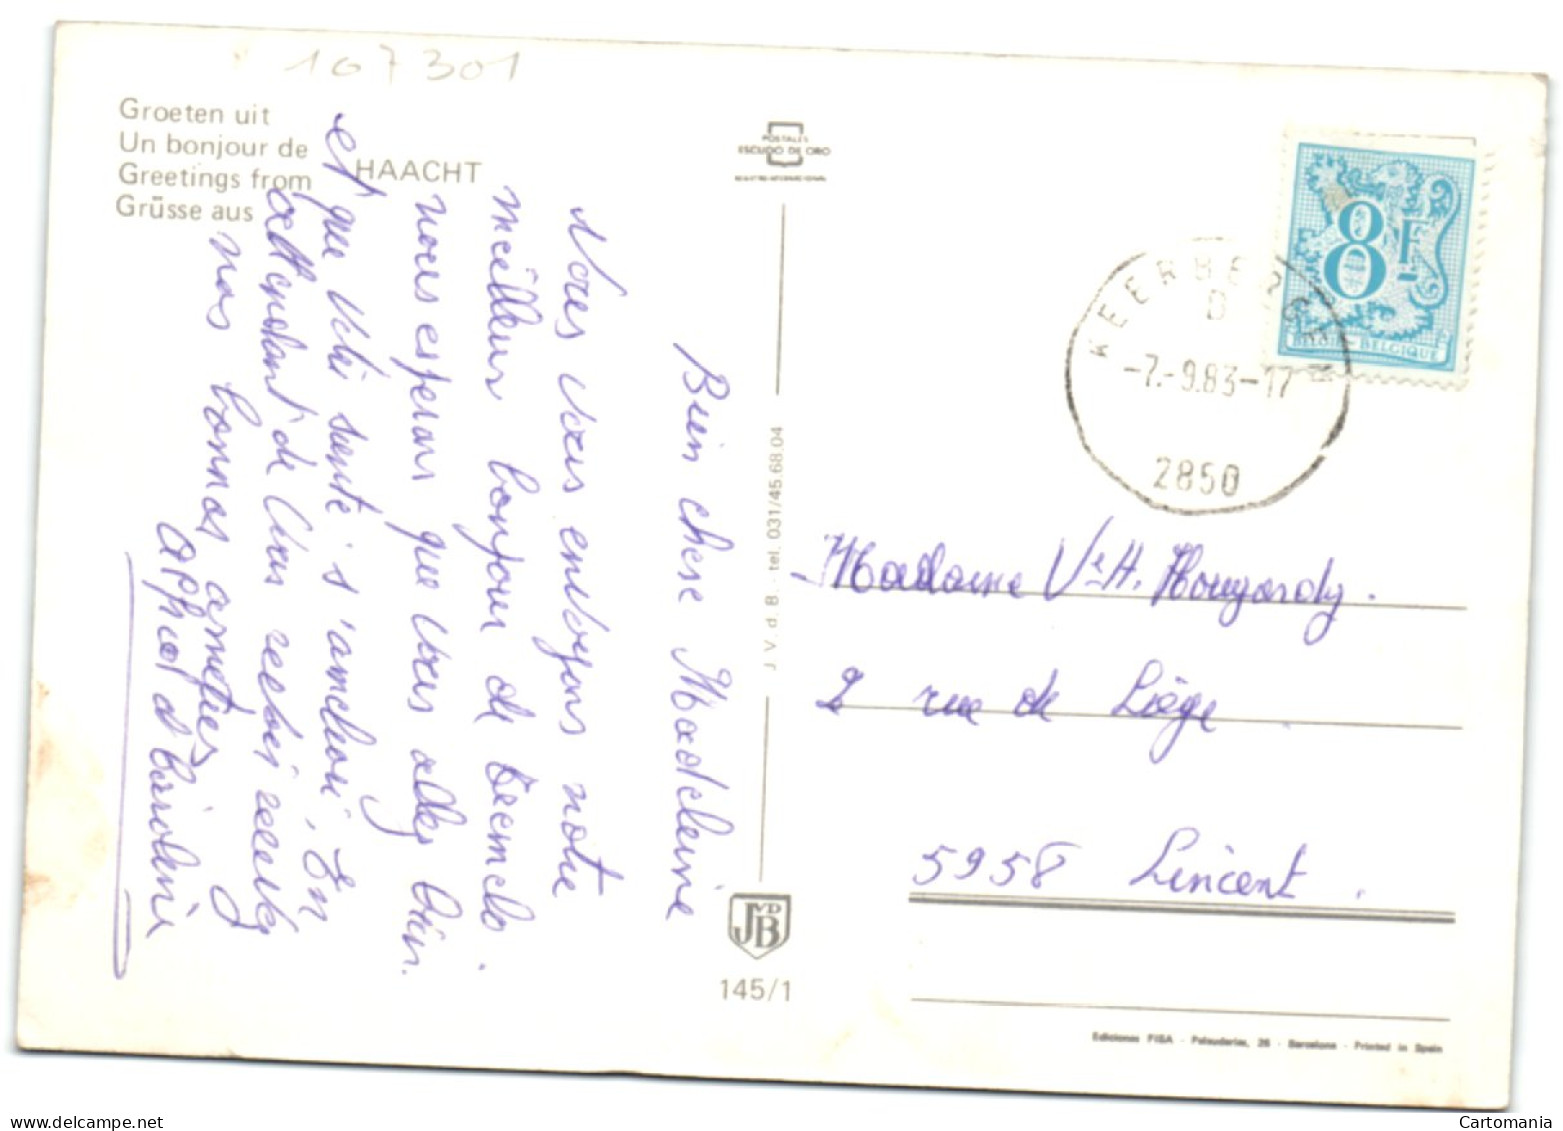 107301
Groeten uit
Un bonjour de
Greetings from
Grüsse aus
HAACHT
POSTALES
ESCUDO DE ORO
Bien chère Madeleine
Nous vous envoyons notre
meilleur bonjour de
nous esperons que vous allez bien.
et que votre santé s'ameliori. En
attendant de vous
nos bonnes amities
J.V.d.B. - tel. 031/45.68.04
JVDB
145/1
8F
BELGIË - BELGIQUE
KEERBERGEN
D
-7.-9.83-17
2850
Madame Ve H. Hougardy.
2 rue de Liège
5958 Lincent.
Ediciones FISA - Palaudarias, 26 - Barcelona - Printed in Spain
Cartomania
www.delcampe.net